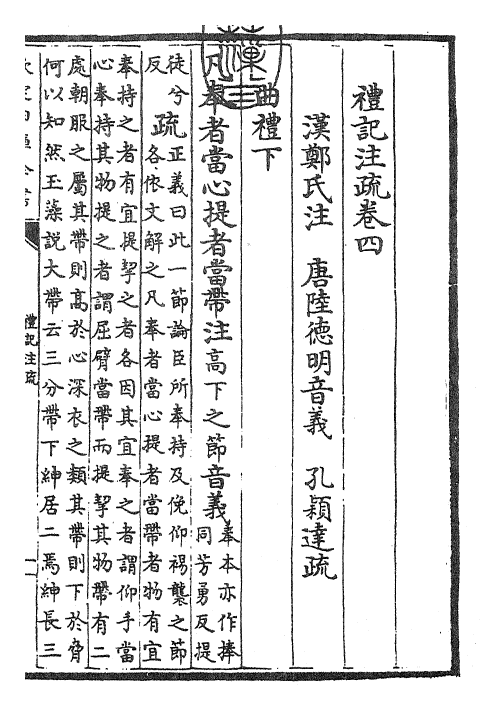 禮記注疏卷四
漢鄭氏注 唐陸德明音義 孔穎達疏
曲禮下
凡奉者當心提者當帶注高下之節音義奉本亦作捧
同芳勇反提
徒兮
反 疏正義曰此一節論臣所奉持及俛仰裼襲之節
各依文解之凡奉者當心提者當帶者物有宜
奉持之者有宜提挈之者各因其宜奉之者謂仰手當
心奉持其物提之者謂屈臂當帶而提挈其物帶有二
處朝服之屬其帶則髙於心深衣之類其帶則下於脅
何以知然玉藻説大帶云三分帶下紳居二焉紳長三
禮記注疏